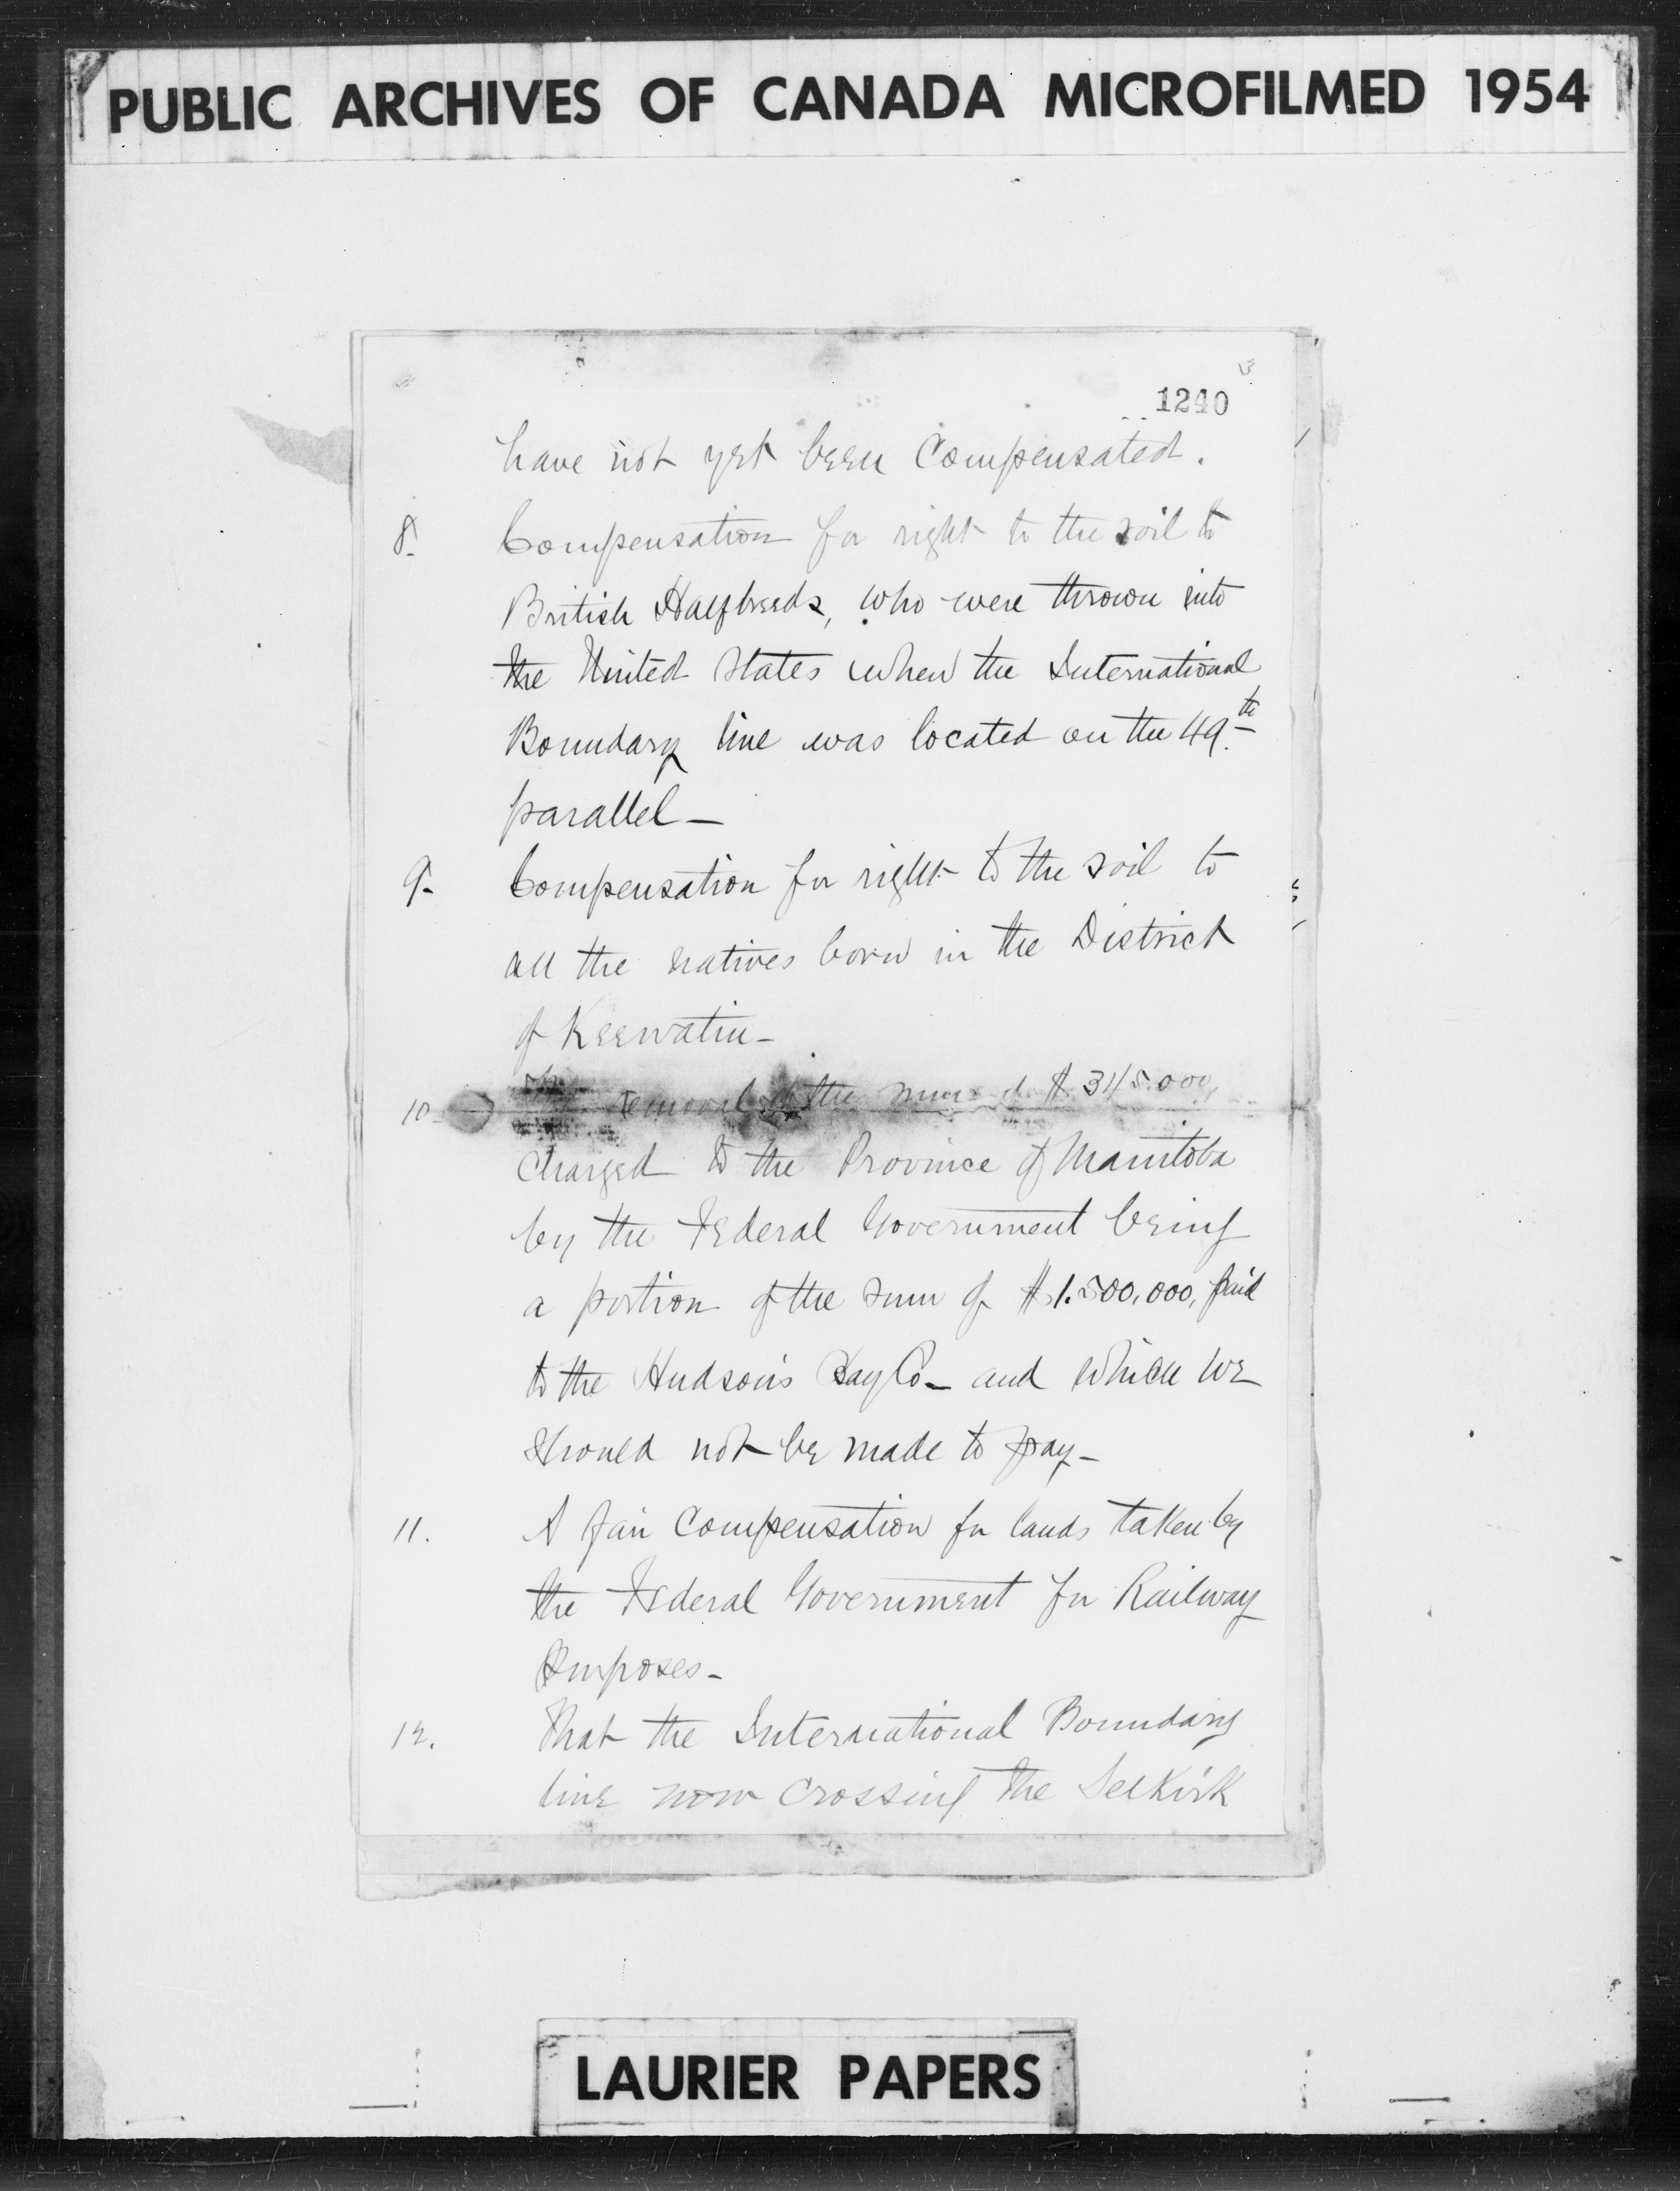 PUBLIC ARCHIVES OF CANADA MICROFILMED 1954
3
1240
have not yet been Compensated.
8. Compensation for right to the soil to
British Halfbreeds, who were thrown into
the United States when the International
Boundary line was located on the 49th
parallel—
9— Compensation for right to the soil to
all the natives born in the District
of Keewatin—
10— The removal of the sum of $345.000,
Charged to the Province of Manitoba
by the Federal Government being
a portion of the sum of $1.500,000, paid
to the Hudson's Bay Co— and which we
should not be made to pay—
11. A fair Compensation for lands taken by
the Federal Government for Railway
Purposes—
12. That the International Boundary
line now crossing the Selkirk
LAURIER PAPERS